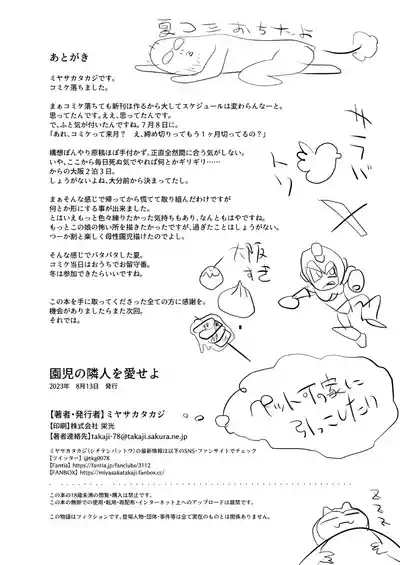 夏コミおちたよ
あとがき
ミヤサカタカジです。
コミケ落ちました。
まぁコミケ落ちても新刊は作るから大してスケジュールは変わらんなーと。
思ってたんです。ええ、思ってたんです。
で、ふと気が付いたんですね。7月8日に。
「あれ、コミケって来月？　え、締め切りってもう1ヶ月切ってるの？」
構想ぼんやり原稿ほぼ手付かず、正直全然間に合う気がしない。
いや、ここから毎日死ぬ気でやれば何とかギリギリ……
からの大阪2泊3日。
しょうがないよね、大分前から決まってたし。
まぁそんな感じで帰ってから慌てて取り組んだわけですが
何とか形にする事が出来ました。
とはいえもっと色々練りたかった気持ちもあり、なんともはやですね。
もっとこの娘の怖い所を描きたかったですが、過ぎたことはしょうがない。
つーか割と楽しく母性園児描けたのでよし。
そんな感じでバタバタした夏。
コミケ当日はおうちでお留守番。
冬は参加できたらいいですね。
この本を手に取ってくださった全ての方に感謝を。
機会がありましたらまた次回。
それでは。
大阪
すき
ペットの家に
引っこしたい
園児の隣人を愛せよ
2023年　8月13日　発行
【著者・発行者】ミヤサカタカジ
【印刷】株式会社 栄光
【著者連絡先】takaji-78@takaji.sakura.ne.jp
ミヤサカタカジ(シチテンバットウ)の最新情報は以下のSNS・ファンサイトでチェック
【ツイッター】@tkg0078
【Fantia】https://fantia.jp/fanclubs/3112
【FANBOX】https://miyasakatakaji.fanbox.cc/
この本の18歳未満の閲覧・購入は禁止です。
この本の無断での使用・転用・再配布・インターネット上へのアップロードは厳禁です。
この物語はフィクションです。登場人物・団体・事件等は全て実在のものとは関係ありません。
zzz